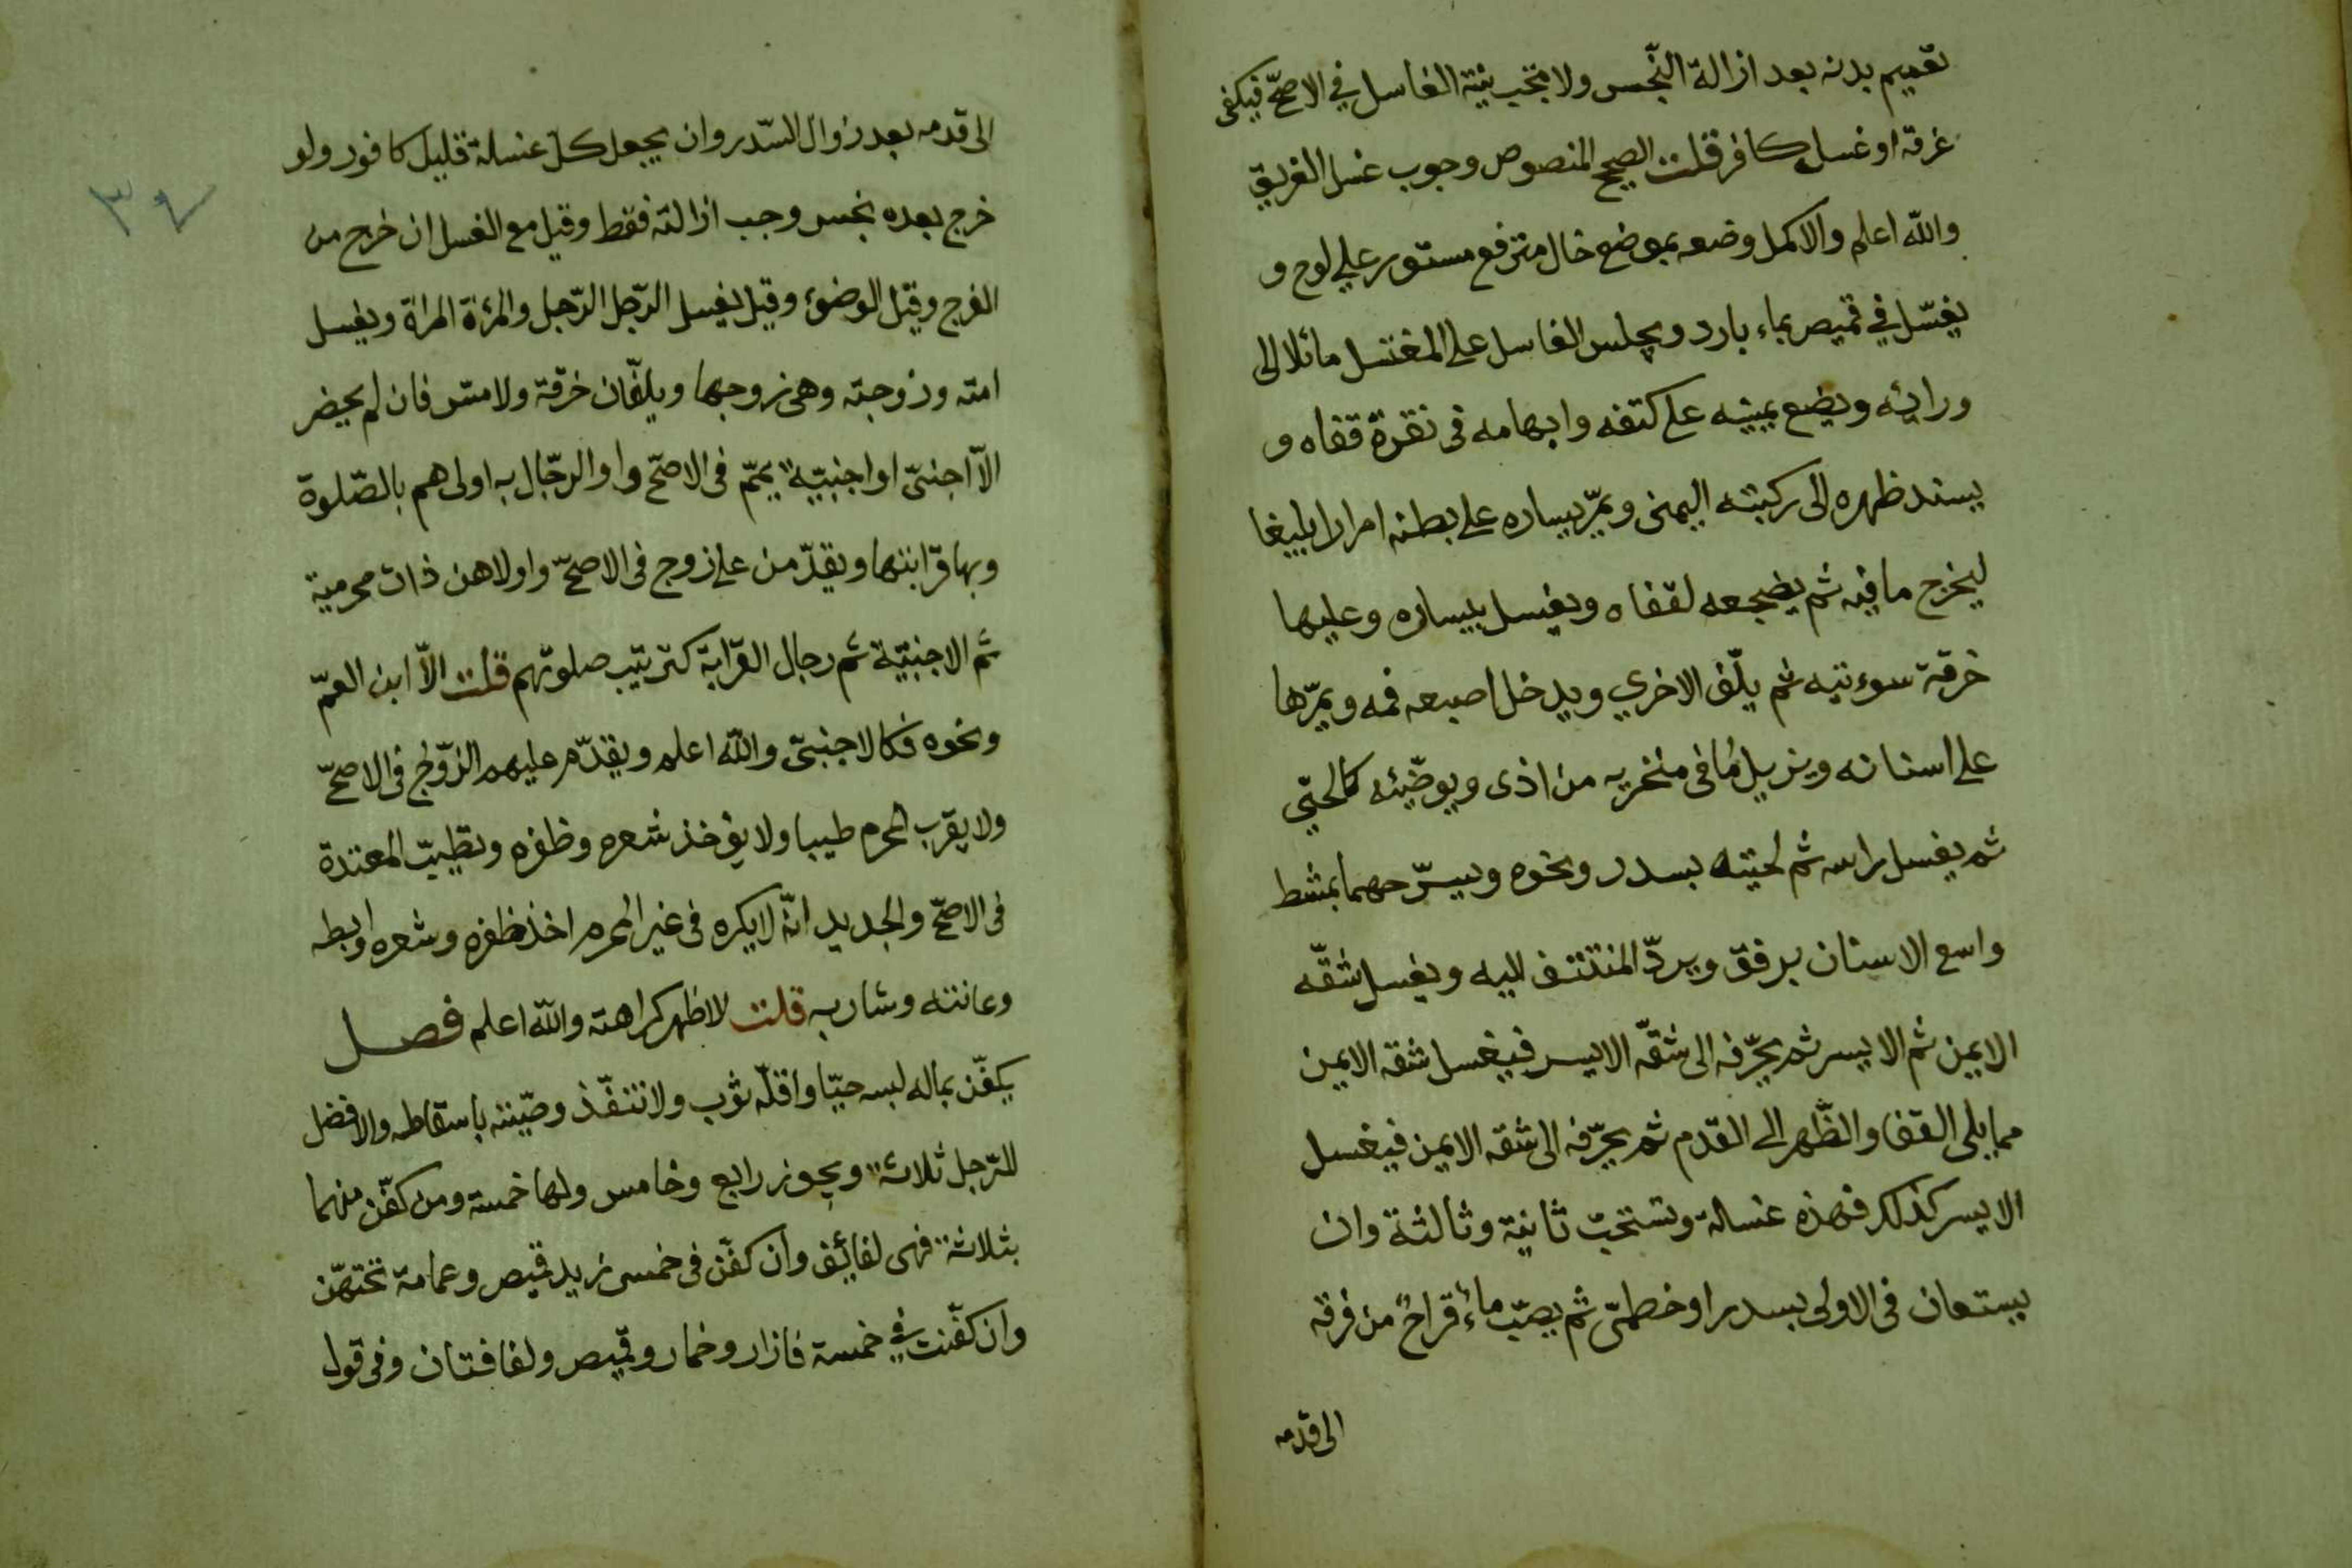 تعميم بدنه بعد ازالة النّجس ولا تجب نيّة الغاسل في الاصحّ فيكفى
غرقه او غسل كافر قلت الصحيح المنصوص وجوب غسل الغريق
والله اعلم والاكمل وضعه بموضع خال متزفع مستور علي لوح و
يغسّل في قميص بماء بارد ويجلس الغاسل على المغتسل مائلا الى
ورائه ويضع يمينه على كتفه وابهامه فى نقرة قفاه و
يسند ظهره الى ركبته اليمنى ويمرّ يساره على بطنه امرارا بليغا
ليخرج ما فيه ثم يضجعه لقفاه ويغسل بيساره وعليها
خرقة سوءتيه ثم يلّف الاخري ويدخل اصبعه فمه ويمرّها
على اسنانه ويزيل ما فى منخريه من اذى ويوضّيئه كالحيّ
ثم يغسل راسه ثم لحيته بسدر ونحوه ويسرّحهما بمشط
واسع الاسنان برفق ويردّ المنتتف اليه ويغسل شقّه
الايمن ثم الايسر ثم يحرّفه الى شقّه الايسر فيغسل شقه الايمن
مما يلى القفا والظّهر الى القدم ثم يحرّفه الى شقه الايمن فيغسل
الايسر كذلك فهذه غسالة وتستحبّ ثانية وثالثة وان
يستعان فى الاولى بسدر او خطمّى ثم يصبّ ماء قراح من فرقه
الى قدمه
٣٧
الى قدمه بعد زوال السّدر وان يجعل كلّ غسلة قليل كافور ولو
خرج بعده نجس وجب ازالته فقط وقيل مع الغسل ان خرج من
الفرج وقيل الوضوء وقيل يغسل الرّجل الرّجل والمرءة المراة ويغسل
امته وزوجته وهى زوجها ويلفّان خرقة ولا مسّ فان لم يحضر
الّا اجنبىّ او اجنبيّة يمّم فى الاصحّ واو الرجّال به اولىهم بالصّلوة
وبها قرّابتها ويقدّمن على زوج فى الاصحّ واولاهن ذات محرمية
ثم الاجنبيّة ثم رجال القرّابة كترتيب صلوتهم قلت الاّ ابن العمّ
ونحوه فكالاجنبىّ والله اعلم ويقدّم عليهم الزّوج فى الاصحّ
ولا يقرب المحرم طيبا ولا يؤخذ شعره وظفره وتطيبّ المعتدة
فى الاصحّ والجديد انّه لا يكره فى غير المحرم اخذ ظفره وشعره وابطه
وعانته وشاربه قلت لاظهر كراهته والله اعلم فصل
يكفّن بماله لبسه حيّا واقلّه ثوب ولا تنفّذ وصّيته باسقاطه والافضل
للرّجل ثلاثة ويجوز رابع وخامس ولها خمسة ومن كفّن منهما
بثلاثة فهى لفائف وان كفّن فى خمس زيد قميص وعمامة تحتهّن
وان كفّنت في خمسة فازار وخمار وقميص ولفافتان وفى قول